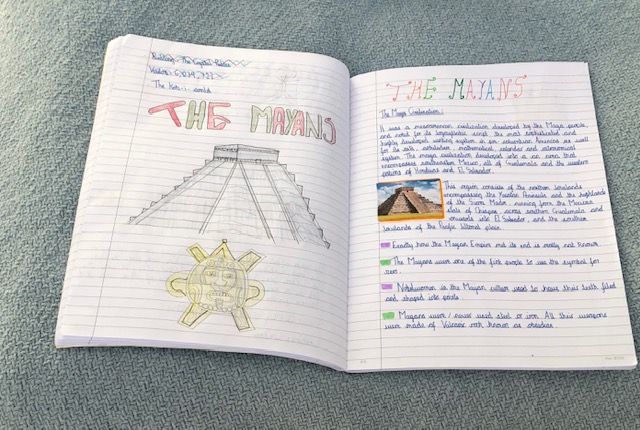 Building - The Crystal Palace
The Koh-i-
THE MAYANS
THE MAYANS
The Maya Civilisation:
It was a mesoamerican civilisation developed by the Maya people,
and noted for its logosyllabic script the most sophisticated and
highly developed writing system in pre-columbian Americas as well
for its arts, architecture, mathematical, calendar and astronomical
system. The maya civilisation developed into a an area that
encompasses southeastern Mexico, all of Guatemala and the western
portions of Honduras and El Salvador.
This region consists of the northern lowlands
encompassing the Yucatan Peninsula and the highlands
of the Sierra Madre, running from the Mexican
state of Chiapas, across southern Guatemala and
onwards into El Salvador, and the southern
lowlands of the Pacific littoral plain.
Exactly how the Mayan Empire met its end is really not known.
The Mayans were one of the first people to use the symbol for
zero.
Noblewomen in the Mayan culture used to have their teeth filed
and shaped into points
Mayans never used steel or iron. All their weapons
were made of Volcanic rock known as obsidian.